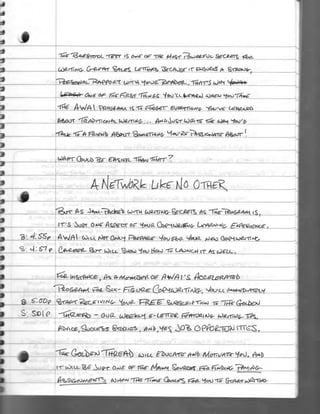 The Barstool Test is one of the most powerful secrets for
writing great sales letters because it ensures a strong,
personal rapport with your reader. That's why
one of the first things you'll learn when you take
the AWAI program is to forget everything you've learned
about traditional writing... and just write the way you'd
talk to a friend about something you're passionate about!
What could be easier than that?
A Network Like No Other
But as jam-packed with writing secrets as the program is,
it's just one aspect of your copywriting learning experience.
B: 4:55p AWAI will not only prepare you for your new copywriting
S: 4:57p career, but will show you how to launch it as well.
For instance, as a member of AWAI's Accelerated
Program for Six-Figure Copywriting, you'll immediately
B: 5:00p start receiving your FREE subscription to The Golden
S: 5:01p Thread - our weekly e-letter featuring writing tips,
advice, success stories, and yes JOB OPPORTUNITIES.
The Golden Thread will educate and motivate you, and
it will be just one of the many sources for finding paying
assignments when the time comes for you to start writing